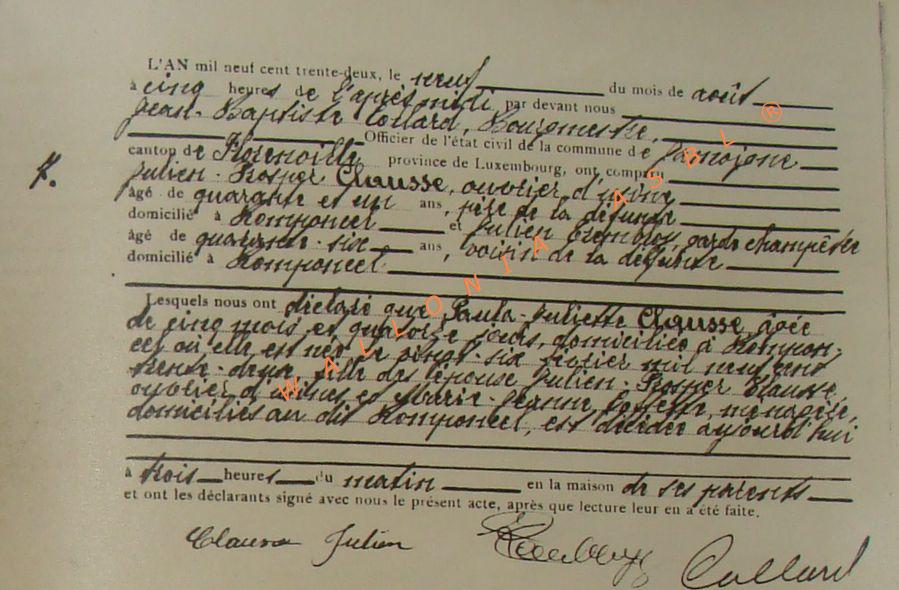 L'AN mil neuf cent trente-deux, le neuf du mois de août
à cinq heures de l'après-midi par devant nous
Jean-Baptiste Collard, Bourgmestre,
Officier de l'état civil de la commune de Jamoigne
canton de Florenville province de Luxembourg, ont comparu
7.
Julien-Prosper Clausse, ouvrier d'usine
âgé de quarante et un ans, père de la défunte
domicilié à Romponcel et Julien garde champêtre
âgé de quarante-six ans, voisin de la défunte
domicilié à Romponcel.
Lesquels nous ont déclaré que Paula-Juliette Clausse, âgée
de cinq mois et quatorze jours, domiciliée à Rompon-
cel où elle est née le vingt-six février mil neuf cent
trente-deux, fille des épouse Julien-Prosper Clausse,
ouvrier d'usines et Marie-Jeanne ménagère,
domiciliés au dit Romponcel, est décédée aujourd'hui
à trois heures du matin en la maison de ses parents
et ont les déclarants signé avec nous le présent acte, après que lecture leur en a été faite.
Clausse Julien Collard
WALLONIA ASBL ®